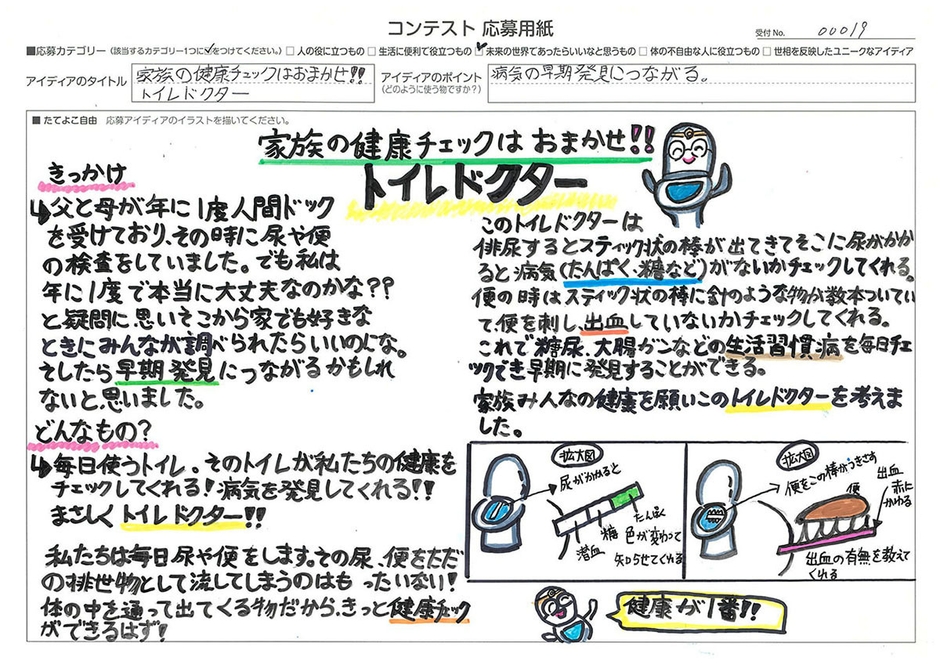 コンテスト 応募用紙
受付No. 00019
■応募カテゴリー（該当するカテゴリー1つに✓をつけてください。）□ 人の役に立つもの □ 生活に便利で役立つもの ☑ 未来の世界であったらいいなと思うもの □ 体の不自由な人に役立つもの □ 世相を反映したユニークなアイディア
アイディアのタイトル
家族の健康チェックはおまかせ!!
トイレドクター
アイディアのポイント
（どのように使う物ですか？）
病気の早期発見につながる。
■ たてよこ自由 応募アイディアのイラストを描いてください。
家族の健康チェックは おまかせ!!
トイレドクター
きっかけ
↳父と母が年に1度人間ドック
を受けており、その時に尿や便
の検査をしていました。でも私は
年に1度で本当に大丈夫なのかな??
と疑問に思いそこから家でも好きな
ときにみんなが調べられたらいいのにな。
そしたら早期発見につながるかもしれ
ないと思いました。
どんなもの?
↳毎日使うトイレ。そのトイレが私たちの健康を
チェックしてくれる!病気を発見してくれる!!
まさしくトイレドクター!!
私たちは毎日尿や便をします。その尿、便をただ
の排世物として流してしまうのはもったいない!
体の中を通って出てくる物だから、きっと健康チェック
ができるはず!
このトイレドクターは
俳尿するとスティック状の棒が出てきてそこに尿がかか
ると病気(たんぱく、糖など)がないかチェックしてくれる。
便の時はスティック状の棒に針のような物が数本ついてい
て、便を刺し、出血していないかチェックしてくれる。
これで糖尿、大腸ガンなどの生活習慣病を毎日チェ
ックでき早期に発見することができる。
家族みんなの健康を願いこのトイレドクターを考えま
した。
拡大図
尿がかかると
たんぱく
糖
潜血
色が変わって
知らせてくれる
拡大図
便をこの棒がつきさす
便
出血
赤に
かわる
出血の有無を教えて
くれる
健康が1番!!